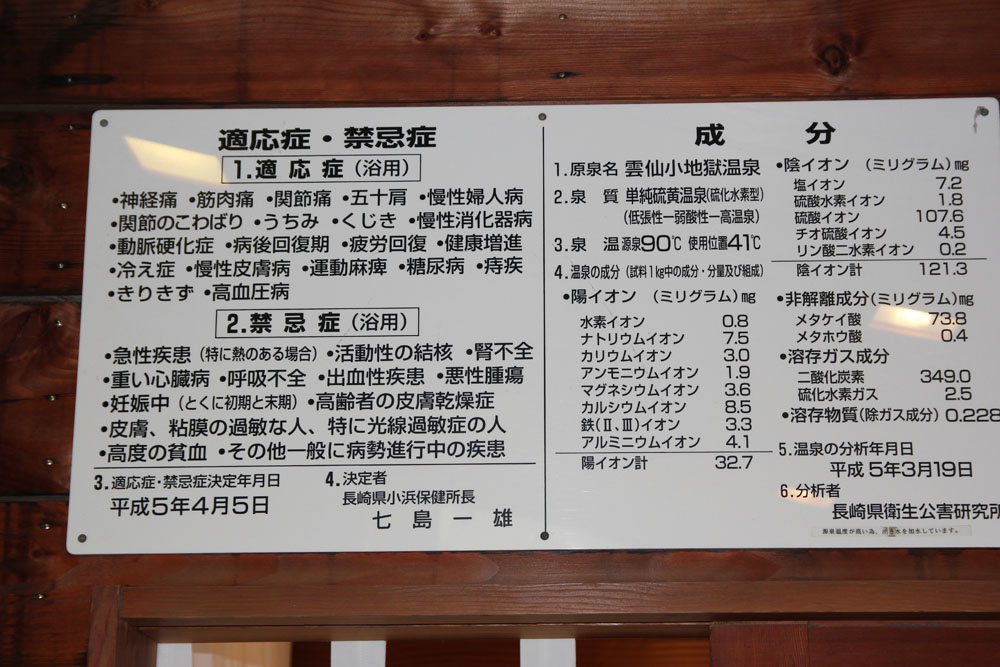 適応症・禁忌症
1.適応症（浴用）
•神経痛 •筋肉痛 •関節痛 •五十肩 •慢性婦人病
•関節のこわばり •うちみ •くじき •慢性消化器病
•動脈硬化症 •病後回復期 •疲労回復 •健康増進
•冷え症 •慢性皮膚病 •運動麻痺 •糖尿病 •痔疾
•きりきず •高血圧病
2.禁忌症（浴用）
•急性疾患（特に熱のある場合） •活動性の結核 •腎不全
•重い心臓病 •呼吸不全 •出血性疾患 •悪性腫瘍
•妊娠中（とくに初期と末期） •高齢者の皮膚乾燥症
•皮膚、粘膜の過敏な人、特に光線過敏症の人
•高度の貧血 •その他一般に病勢進行中の疾患
3.適応症・禁忌症決定年月日
平成5年4月5日
4.決定者
長崎県小浜保健所長
七島一雄
成分
1.原泉名 雲仙小地獄温泉
2.泉 質 単純硫黄温泉(硫化水素型)
（低張性一弱酸性一高温泉）
3.泉 温 源泉90℃ 使用位置41℃
4.温泉の成分（試料1㎏中の成分・分量及び組成）
•陽イオン （ミリグラム）㎎
水素イオン 0.8
ナトリウムイオン 7.5
カリウムイオン 3.0
アンモニウムイオン 1.9
マグネシウムイオン 3.6
カルシウムイオン 8.5
鉄(Ⅱ、Ⅲ)イオン 3.3
アルミニウムイオン 4.1
陽イオン計 32.7
•陰イオン （ミリグラム）㎎
塩イオン 7.2
硫酸水素イオン 1.8
硫酸イオン 107.6
チオ硫酸イオン 4.5
リン酸二水素イオン 0.2
陰イオン計 121.3
•非解離成分（ミリグラム）㎎
メタケイ酸 73.8
メタホウ酸 0.4
•溶存ガス成分
二酸化炭素 349.0
硫化水素ガス 2.5
•溶存物質（除ガス成分）0.228
5.温泉の分析年月日
平成5年3月19日
6.分析者
長崎県衛生公害研究所
源泉温度が高い為、水を加水しています。